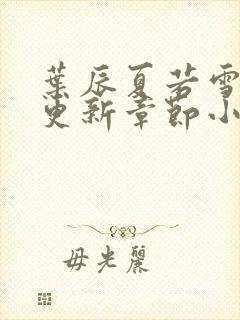 葉辰夏若雪
更新章節小
毋光麗